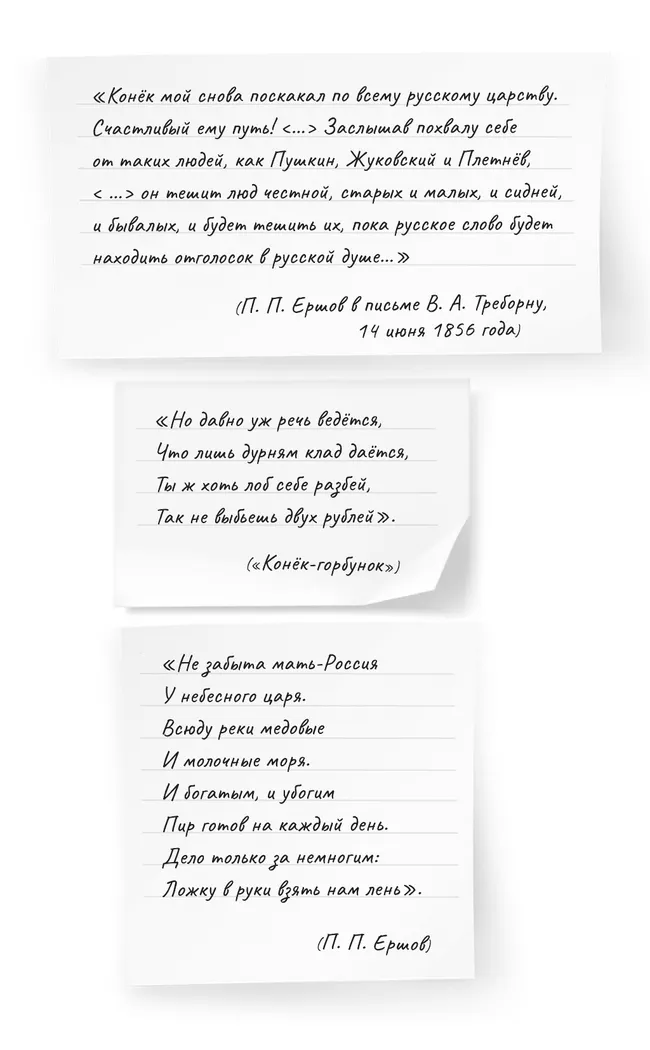 «Конёк мой снова поскакал по всему русскому царству.
Счастливый ему путь! <...> Заслышав похвалу себе
от таких людей, как Пушкин, Жуковский и Плетнёв,
< ...> он тешит люд честной, старых и малых, и сидней,
и бывалых, и будет тешить их, пока русское слово будет
находить отголосок в русской душе...»
(П. П. Ершов в письме В. А. Треборну,
14 июня 1856 года)
«Но давно уж речь ведётся,
Что лишь дурням клад даётся,
Ты ж хоть лоб себе разбей,
Так не выбьешь двух рублей».
(«Конёк-горбунок»)
«Не забыта мать-Россия
У небесного царя.
Всюду реки медовые
И молочные моря.
И богатым, и убогим
Пир готов на каждый день.
Дело только за немногим:
Ложку в руки взять нам лень».
(П. П. Ершов)